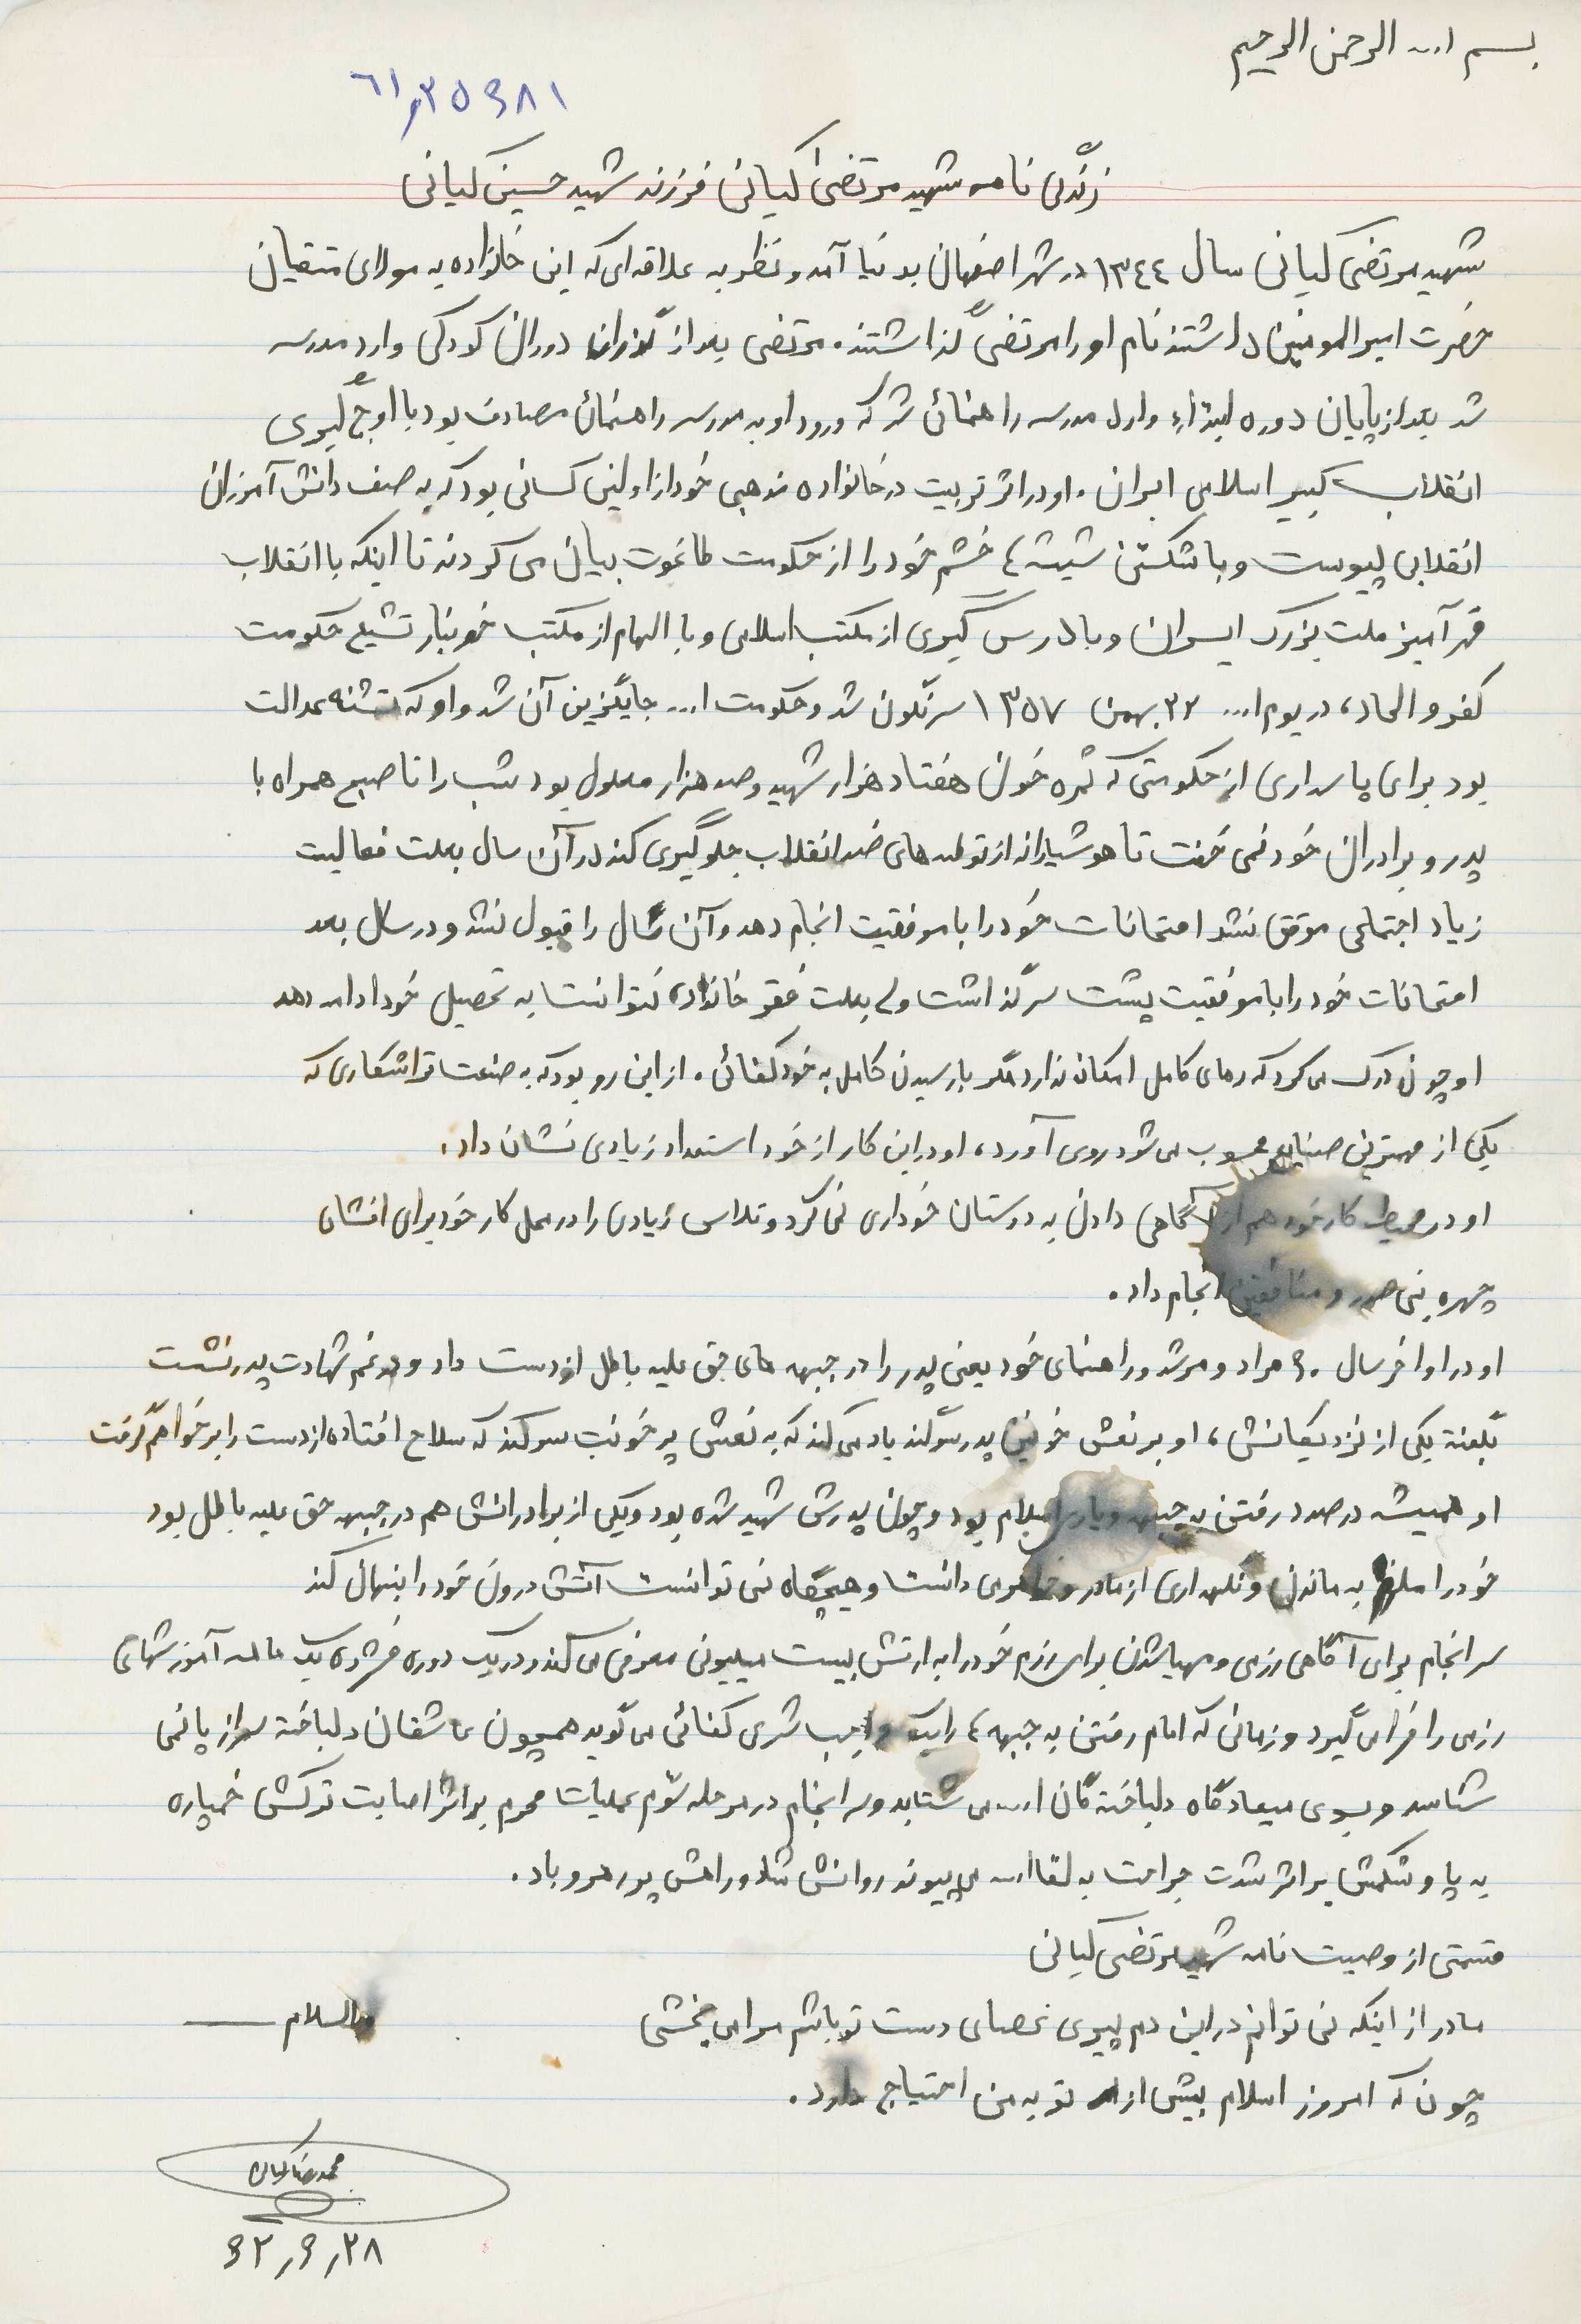 بسم ا... الرحمن الرحیم
زندگی نامه شهید مرتضی کیانی فرزند شهید حسین کیانی
شهید مرتضی کیانی سال ۱۳۴۴ در شهر اصفهان بدنیا آمد و نظر به علاقه‌ای که این خانواده به مولای متقیان
حضرت امیرالمومنین داشتند نام او را مرتضی گذاشتند. مرتضی بعد از گذران دوران کودکی وارد مدرسه
شد بعد از پایان دوره ابتداء وارد مدرسه راهنمائی شد که ورود او به مدرسه راهنمائی مصادف بود با اوج گیری
انقلاب کبیر اسلامی ایران. او در اثر تربیت در خانواده مذهبی خود از اولین کسانی بود که به صف دانش آموزان
انقلابی پیوست و با شکستن شیشه ء خشم خود را از حکومت طاغوت بیان می کردند تا اینکه با انقلاب
قهرآمیز ملت بزرگ ایران و با درس گیری از مکتب اسلامی و با الهام از مکتب خونبار تشیع حکومت
کفر و الحاد، در یوم ا... ۲۲ بهمن ۱۳۵۷ سرنگون شد و حکومت ا... جایگزین آن شد و او که تشنه عدالت
بود برای پاسداری از حکومتی که ثمره خون هفتاد هزار شهید و صد هزار معلول بود شب را تا صبح همراه با
پدر و برادران خود نمی خفت تا هوشیارانه از توطئه های ضد انقلاب جلوگیری کند در آن سال بعلت فعالیت
زیاد اجتماعی موفق نشد امتحانات خود را با موفقیت انجام دهد و آن سال را قبول نشد و در سال بعد
امتحانات خود را با موفقیت پشت سر گذاشت ولی بعلت فقر خانواده نتوانست به تحصیل خود ادامه دهد
او چون درک می کرد که رهای کامل امکان ندارد مگر با رسیدن کامل به خود کفائی. از این رو بود که به صنعت تراشکاری که
یکی از مهمترین صنایع محسوب می شود روی آورد، او در این کار از خود استعداد زیادی نشان داد.
او در محیط کار خود هم از آگاهی دادن به دوستان خوداری نمی کرد و تلاس زیادی را در محل کار خود برای افشای
چهره بنی صدر و منافقین انجام داد.
او در اواخر سال ۶۰ مراد و مرشد و راهنمای خود یعنی پدر را در جبهه های حق علیه باطل از دست داد و در غم شهادت پدر نشست
بگفته یکی از نزدیکانش، او بر نعش خونین پدر سوگند یاد می کند که به نعش پر خونت سوگند که سلاح افتاده از دست را بر خواهم گرفت
او همیشه در صدد رفتن به جبهه و یاری اسلام بود و چون پدرش شهید شده بود و یکی از برادرانش هم در جبهه حق علیه باطل بود
خود را ملزم به ماندن و نگهداری از مادر و خواهری دانست و هیچگاه نمی توانست آتش درون خود را پنهان کند
سرانجام برای آگاهی رزمی و مهیا شدن برای رزم خود را به ارتش بیست میلیونی معرفی می کند و در یک دوره فشرده یک ماهه آموزشهای
رزمی را فرا می گیرد و زمانی که امام رفتن به جبهه ء را یک واجب شرعی کفائی می گوید همچون عاشقان دلباخته سر از پا نمی
شناسد و بسوی میعادگاه دلباخته گان ا... می شتابد و سرانجام در مرحله سوم عملیات محرم بر اثر اصابت ترکش خمپاره
به پا و شکمش بر اثر شدت جراحت به لقاا... می پیوند روانش شاد و راهش پر رهرو باد.
قسمتی از وصیت نامه شهید مرتضی کیانی
مادر از اینکه نمی توانم در این دم پیری عصای دست تو باشم مرا می بخشی
والسلام
چون که امروز اسلام بیش از تو به من احتیاج دارد.
محمدرضا کیانی
۶۲٫۶٫۲۸